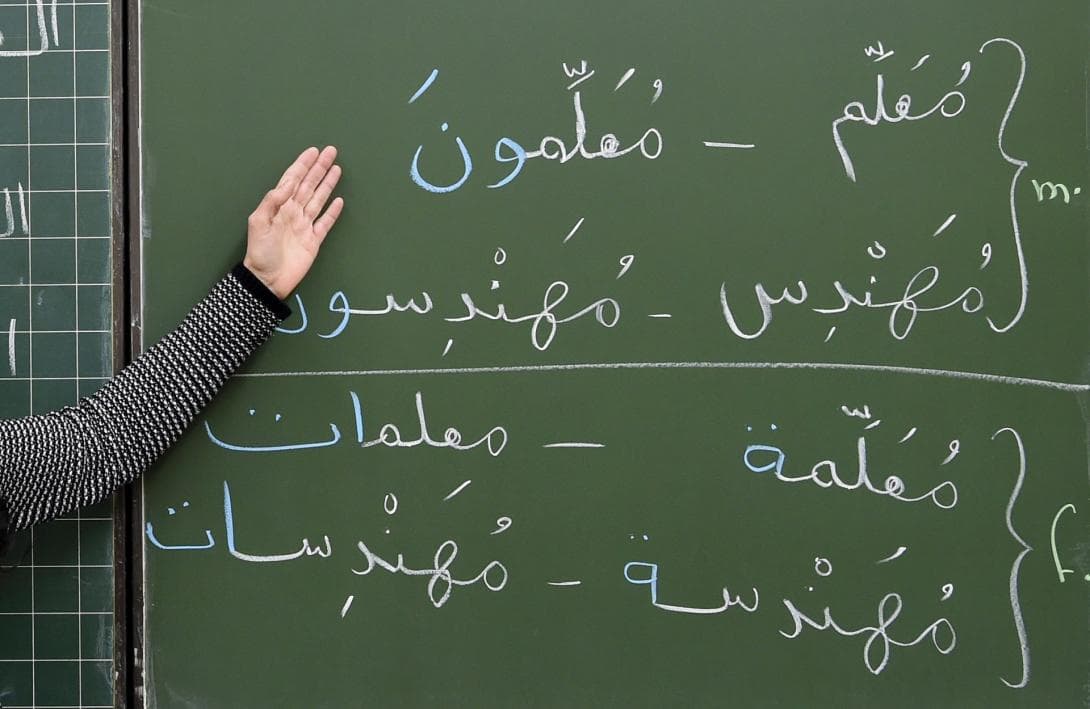 مُعَلِّم — مُعَلِّمونَ
m.
مُهَنْدِس - مُهَنْدِسون
مُعَلِّمة — معلمات
f.
مُهَنْدسة - مُهَنْدِسات